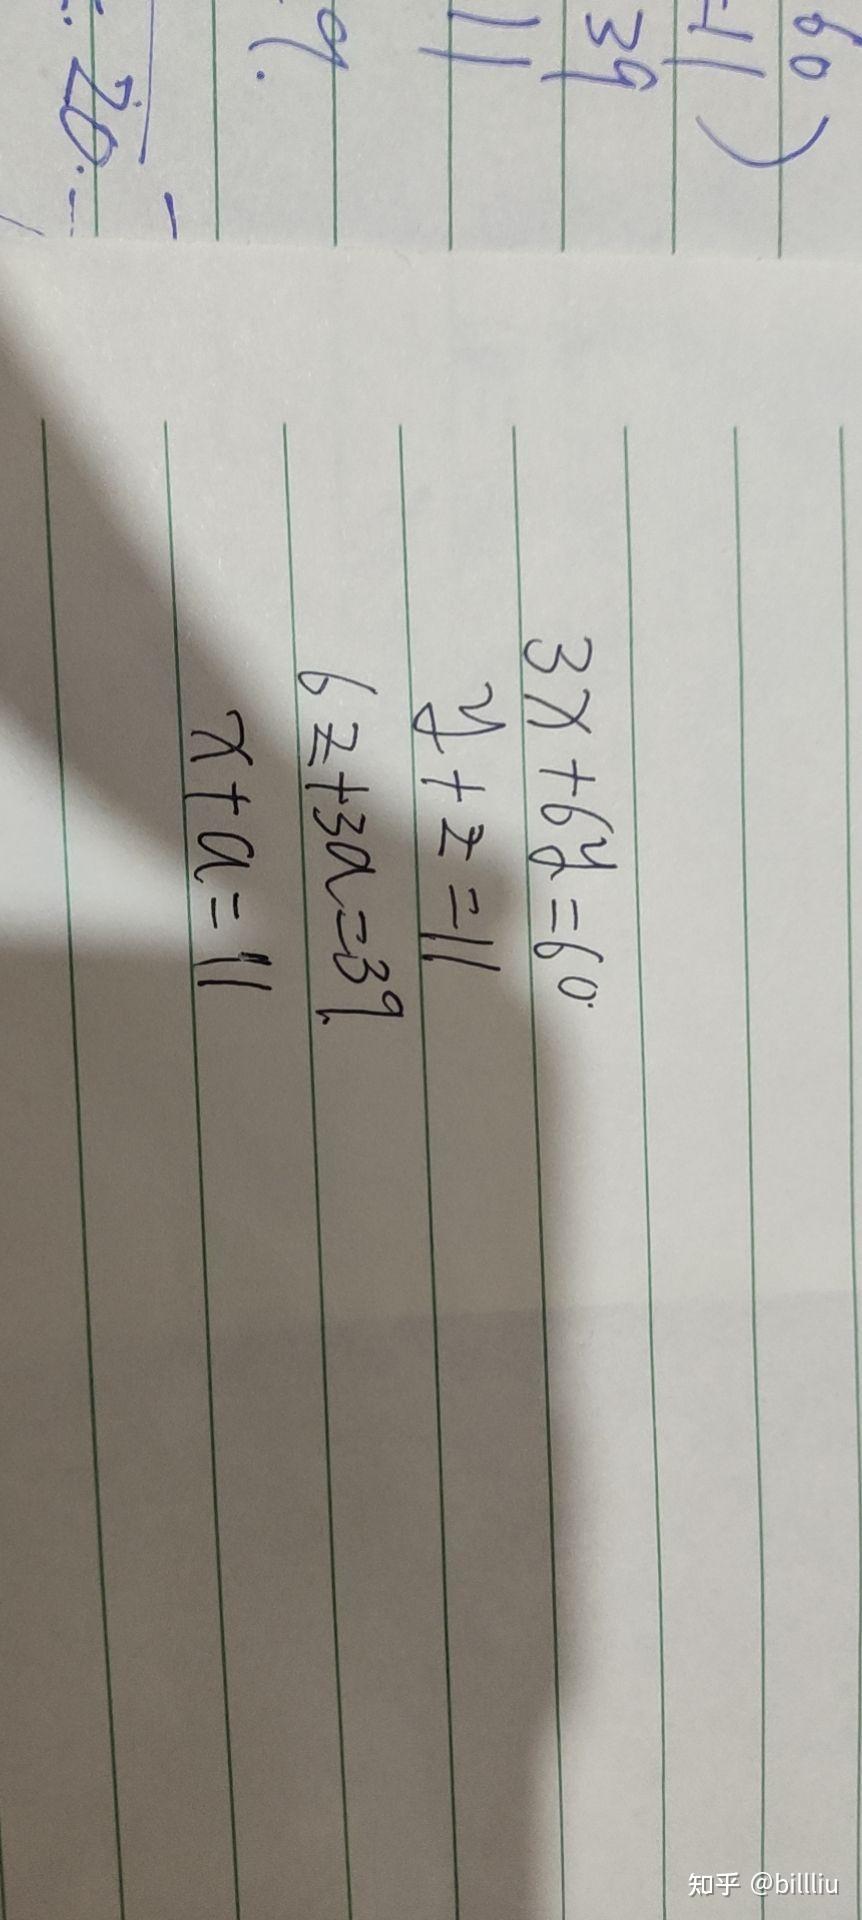 3x+6y=60
y+z=11
6z+3a=39
x+a=11
60)
11
39
11
9.
20
知乎 @billliu